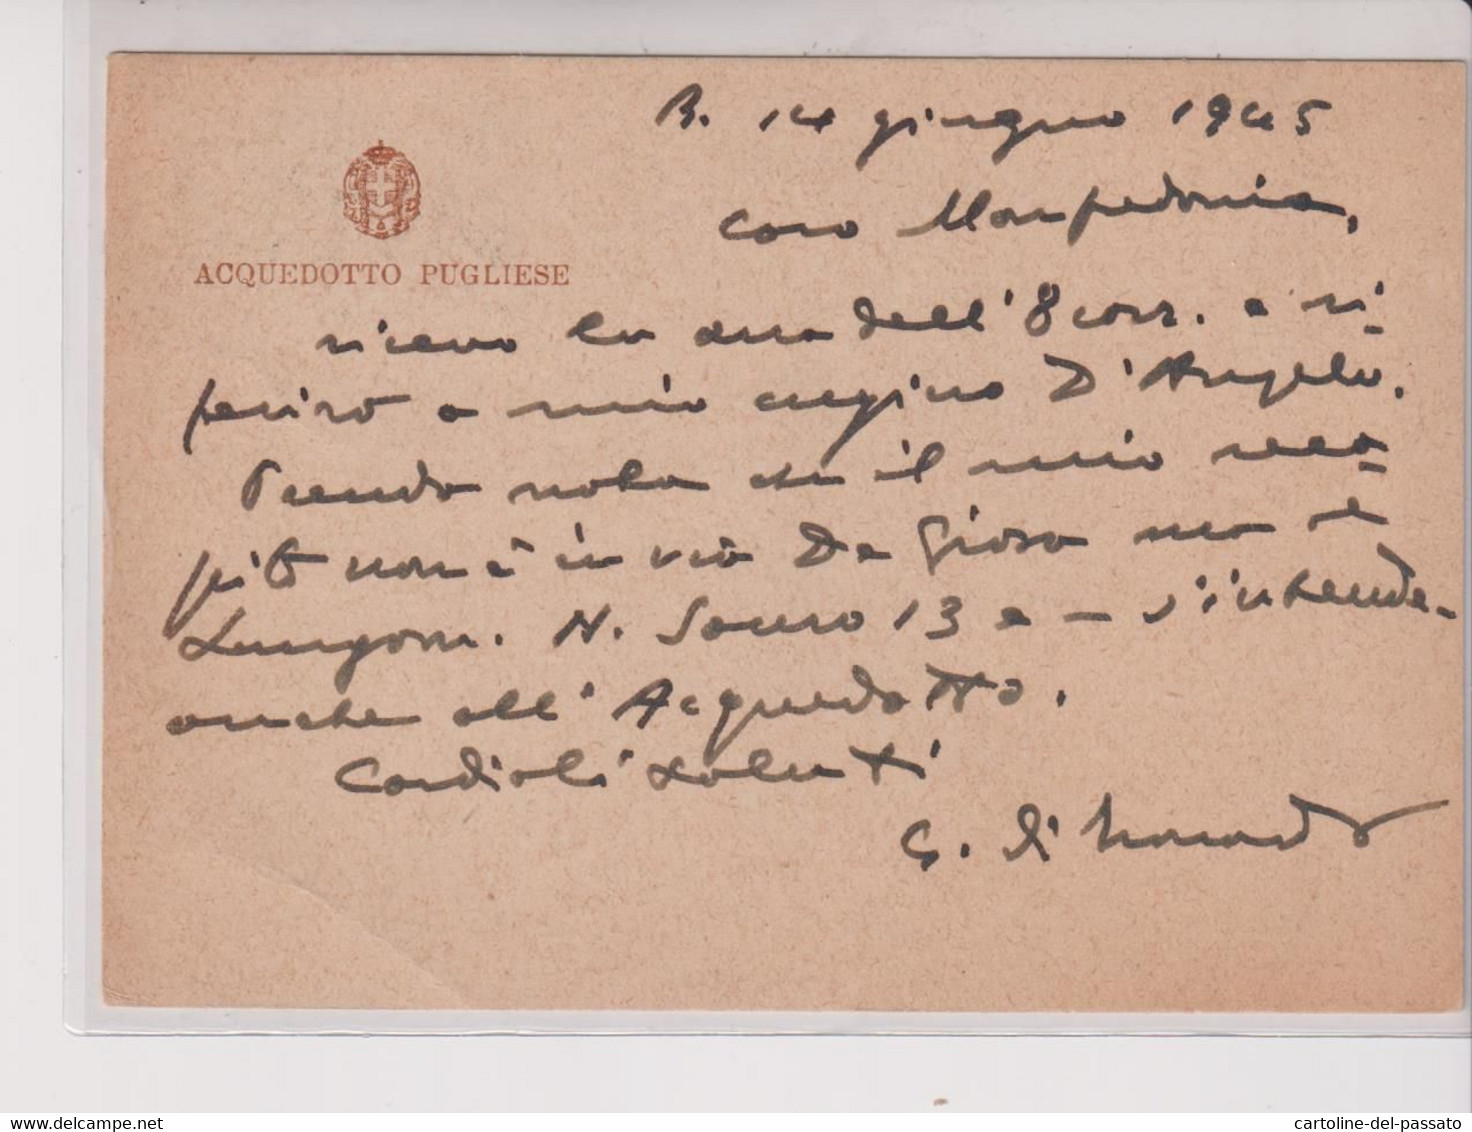 B. 14 giugno 1945
ACQUEDOTTO PUGLIESE
caro Manfredonia,
ricevo la sua dell'8 corr. e ri-
ferirò a mio cugino D'Angelo.
Prendo nota che il mio reca-
pito non è in via De Giosa ma al
Lungom. N. Sauro 13 e – s'intende –
anche all'Acquedotto.
Cordiali saluti
G. di
cartoline-del-passato
www.delcampe.net